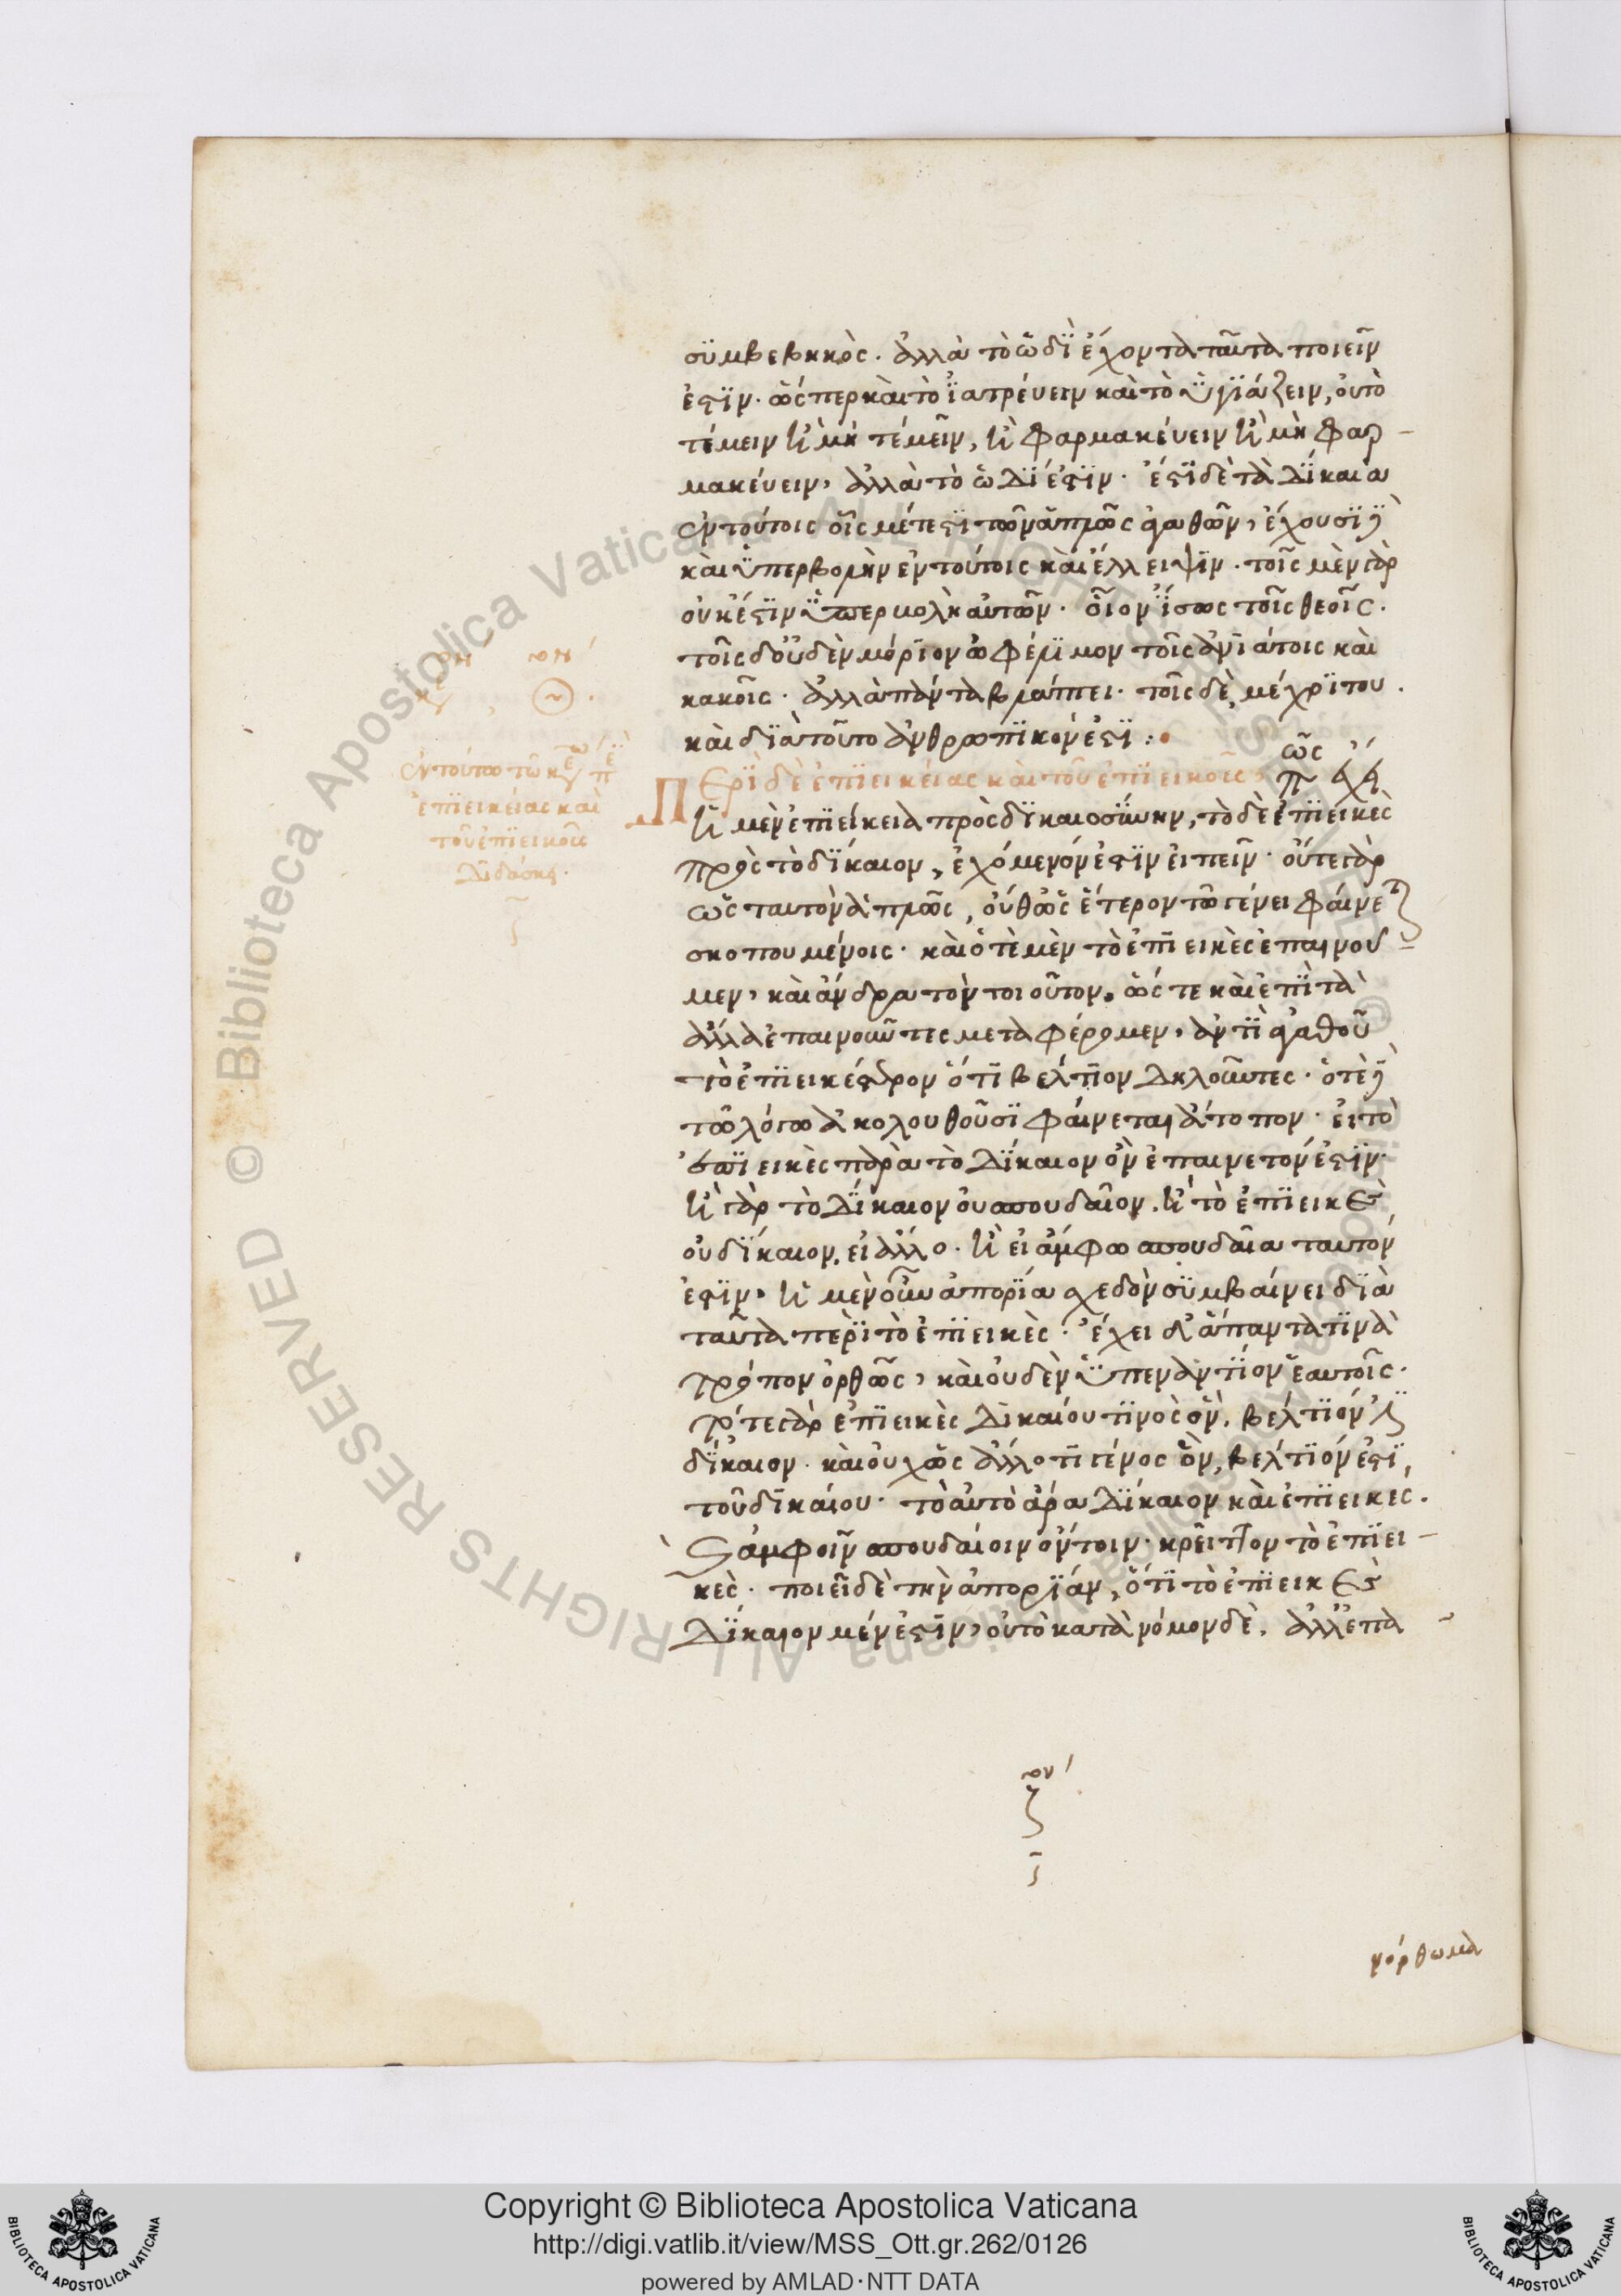 συμβεβηκὸς. ἀλλὰ τὸ ὡδὶ ἔχοντα ταῦτα ποιεῖν
ἐστιν. ὥσπερ καὶ τὸ ἰατρεύειν καὶ τὸ ὑγιάζειν, οὐ τὸ
τέμειν ἢ μὴ τέμειν, ἢ φαρμακεύειν ἢ μὴ φαρ-
μακεύειν, ἀλλὰ τὸ ὡδί ἐστιν. ἔστι δὲ τὰ δίκαια
ἐν τούτοις οἷς μέτεστι τῶν ἁπλῶς ἀγαθῶν, ἔχουσι δὲ
καὶ ὑπερβολὴν ἐν τούτοις καὶ ἔλλειψιν. τοῖς μὲν γὰρ
οὐκ ἔστιν ὑπερβολὴ αὐτῶν. οἷον ἴσως τοῖς θεοῖς.
τοῖς δ' οὐδὲν μόριον ὠφέλιμον τοῖς ἀνιάτοις καὶ
κακοῖς. ἀλλὰ πάντα βλάπτει. τοῖς δὲ, μέχρι του.
καὶ διὰ τοῦτο ἀνθρωπικόν ἐστι :
Περὶ δὲ ἐπιεικείας καὶ τοῦ ἐπιεικοῦς, πῶς ἔχει
ἡ μὲν ἐπιείκεια πρὸς δικαιοσύνην, τὸ δὲ ἐπιεικὲς
πρὸς τὸ δίκαιον, ἐχόμενόν ἐστιν εἰπεῖν. οὔτε γὰρ
ὡς ταυτὸν ἁπλῶς, οὔθ' ὡς ἕτερον τῷ γένει φαίνεται
σκοπουμένοις. καὶ ὁτὲ μὲν τὸ ἐπιεικὲς ἐπαινοῦ
μεν, καὶ ἄνδρα τὸν τοιοῦτον. ὥστε καὶ ἐπὶ τὰ
ἄλλα ἐπαινοῦντες μεταφέρομεν, ἀντὶ ἀγαθοῦ
τὸ ἐπιεικέστερον ὅτι βέλτιον δηλοῦντες. ὁτὲ δὲ
τῷ λόγῳ ἀκολουθοῦσι φαίνεται ἄτοπον. εἰ τὸ
ἐπιεικὲς παρὰ τὸ δίκαιον ὂν ἐπαινετόν ἐστιν.
ἢ γὰρ τὸ δίκαιον οὐ σπουδαῖον. ἢ τὸ ἐπιεικὲς
οὐ δίκαιον, εἰ ἄλλο. ἢ εἰ ἄμφω σπουδαῖα ταυτόν
ἐστιν, ἡ μὲν οὖν ἀπορία σχεδὸν συμβαίνει διὰ
ταῦτα περὶ τὸ ἐπιεικὲς. ἔχει δ' ἅπαντα τινὰ
τρόπον ὀρθῶς, καὶ οὐδὲν ὑπεναντίον ἑαυτοῖς.
τό τε γὰρ ἐπιεικὲς δικαίου τινὸς ὂν, βέλτιόν ἐστι
δίκαιον. καὶ οὐχ ὡς ἄλλο τι γένος ὂν, βέλτιόν ἐστι,
τοῦ δικαίου. τὸ αὐτὸ ἄρα δίκαιον καὶ ἐπιεικες.
καὶ ἀμφοῖν σπουδαίοιν ὄντοιν. κρεῖττον τὸ ἐπιει-
κὲς. ποιεῖ δὲ τὴν ἀπορίαν, ὅτι τὸ ἐπιεικὲς
δίκαιον μέν ἐστιν, οὐ τὸ κατὰ νόμον δὲ, ἀλλ' ἐπα
ἐν τούτῳ τῷ
ἐπιεικείας καὶ
τοῦ ἐπιεικοῦς
διδάσκει.
νόρθωμα
Copyright © Biblioteca Apostolica Vaticana
http://digi.vatlib.it/view/MSS_Ott.gr.262/0126
powered by AMLAD·NTT DATA
BIBLIOTECA APOSTOLICA VATICANA
BIBLIOTECA APOSTOLICA VATICANA
© Biblioteca Apostolica Vaticana ALL RIGHTS RESERVED